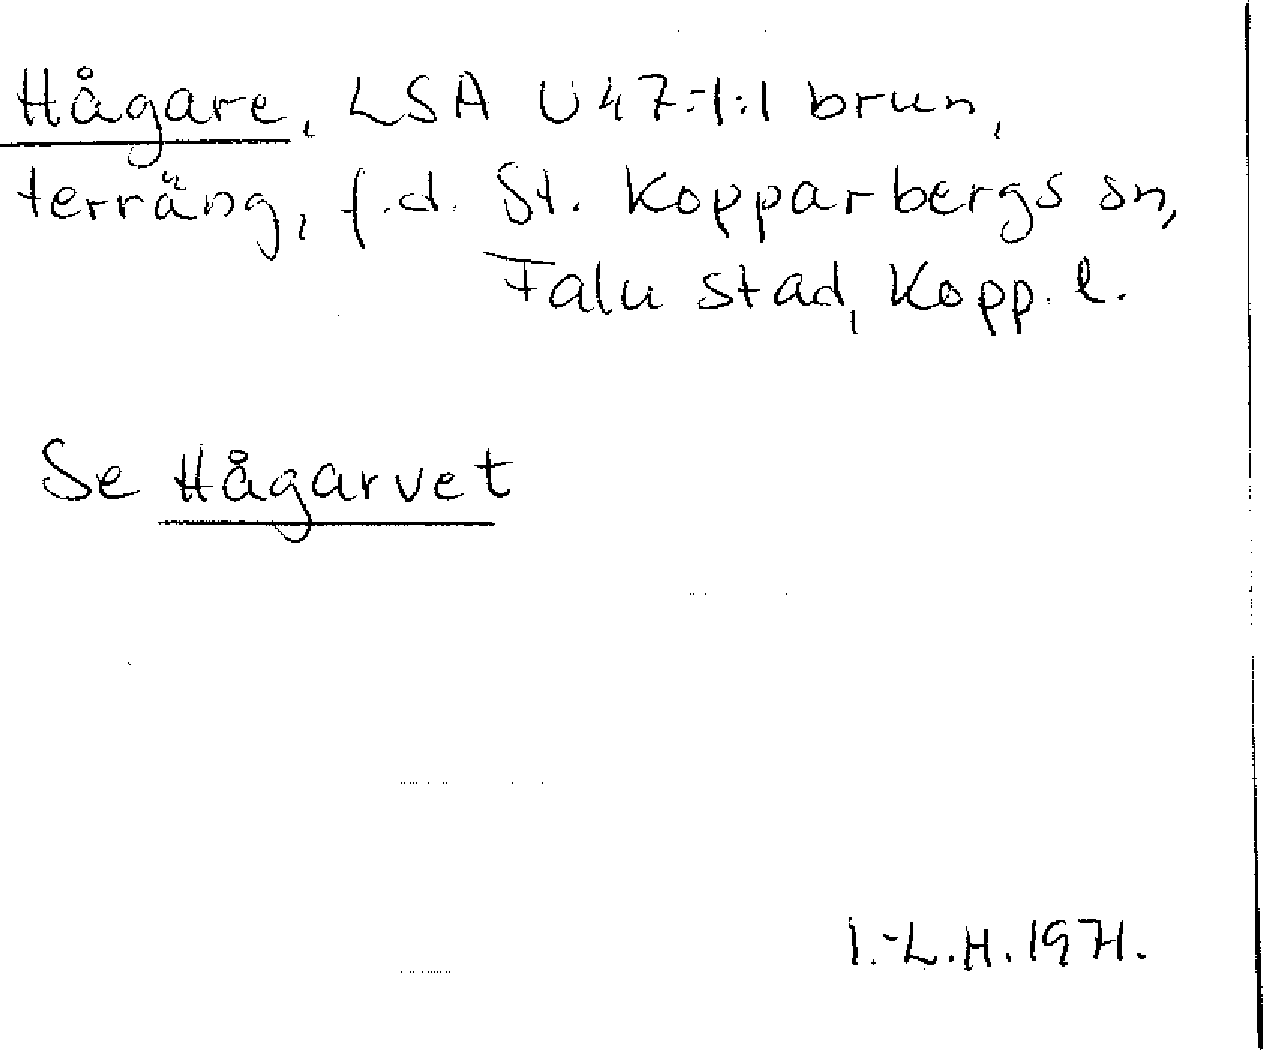 Hågare, LSA U47:1:1 brun,
terräng, f.d. St. Kopparbergs sn,
Falu stad, Kopp. l.
Se Hågarvet
I.-L.H. 1971.